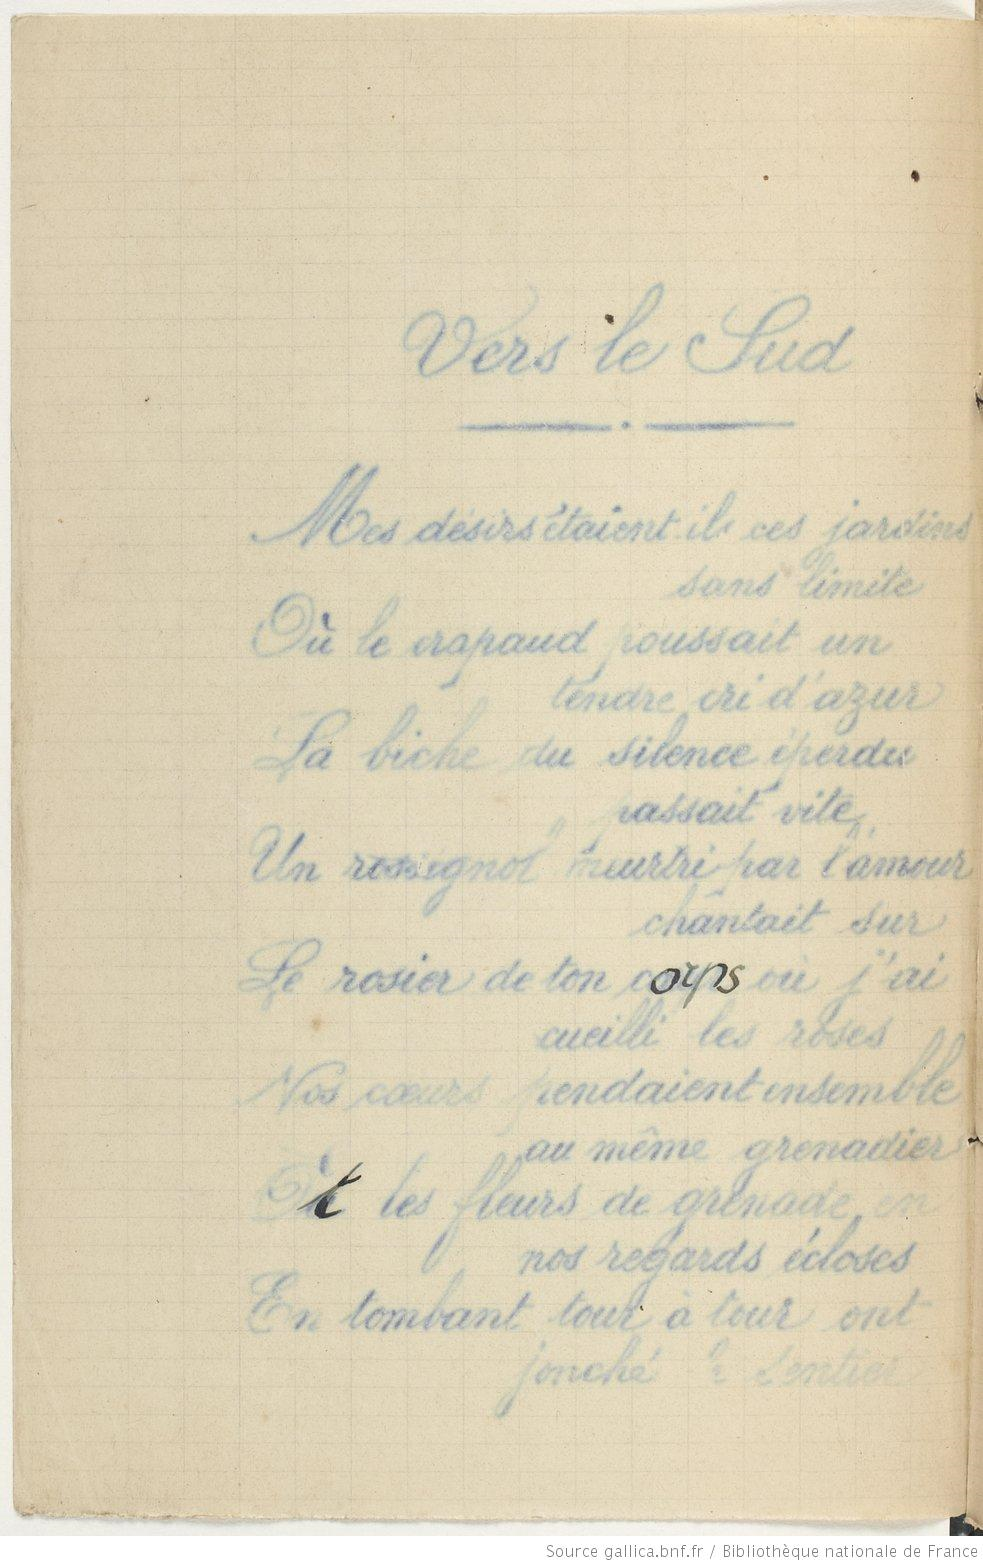 Vers le Sud
Mes désirs étaient-ils ces jardins
sans limite
Où le crapaud poussait un
tendre cri d'azur
La biche du silence éperdu
passait vite
Un rossignol meurtri par l'amour
chantait sur
Le rosier de ton corps où j'ai
cueilli les roses
Nos cœurs pendaient ensemble
au même grenadier
Et les fleurs de grenade en
nos regards écloses
En tombant tour à tour ont
jonché le sentier
Source gallica.bnf.fr / Bibliothèque nationale de France